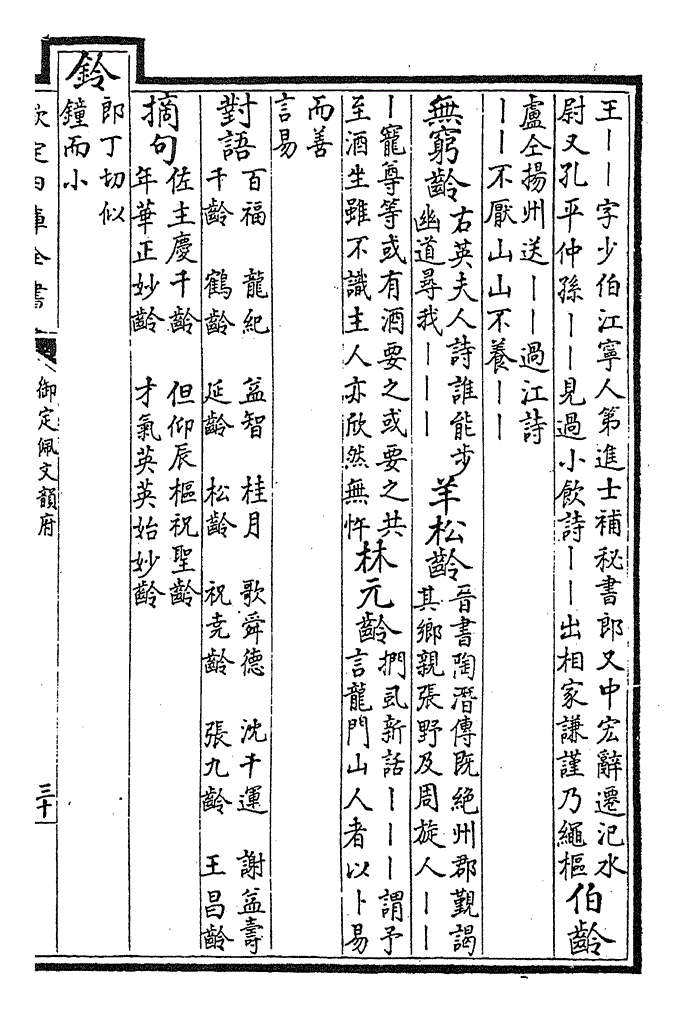 王丨丨字少伯江寧人第進士補秘書郎又中宏辭遷汜水
尉又孔平仲孫丨丨見過小飲詩丨丨出相家謙謹乃繩樞
伯齡
盧仝揚州送丨丨過江詩
丨丨不厭山山不養丨丨
無窮齡
右英夫人詩誰能步
幽道尋我丨丨丨
羊松齡
晉書陶潛傳既絶州郡覲謁
其鄉親張野及周旋人丨丨
丨寵尊等或有酒要之或要之共
至酒坐雖不識主人亦欣然無忤
林元齡
捫虱新話丨丨丨謂予
言龍門山人者以卜易
而善
言易
對語
百福 龍紀 益智 桂月 歌舜德 沈千運 謝益壽
千齡 鶴齡 延齡 松齡 祝堯齡 張九齡 王昌齡
摘句
佐主慶千齡 但仰辰樞祝聖齡
年華正妙齡 才氣英英始妙齡
鈴
郎丁切似
鐘而小
欽定四庫全書
御定佩文韻府
三十